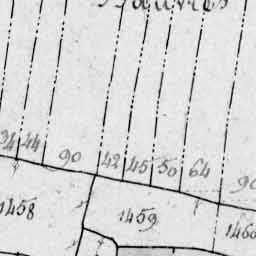 34 44 90 42 45 50 64 90
1458 1459 1460